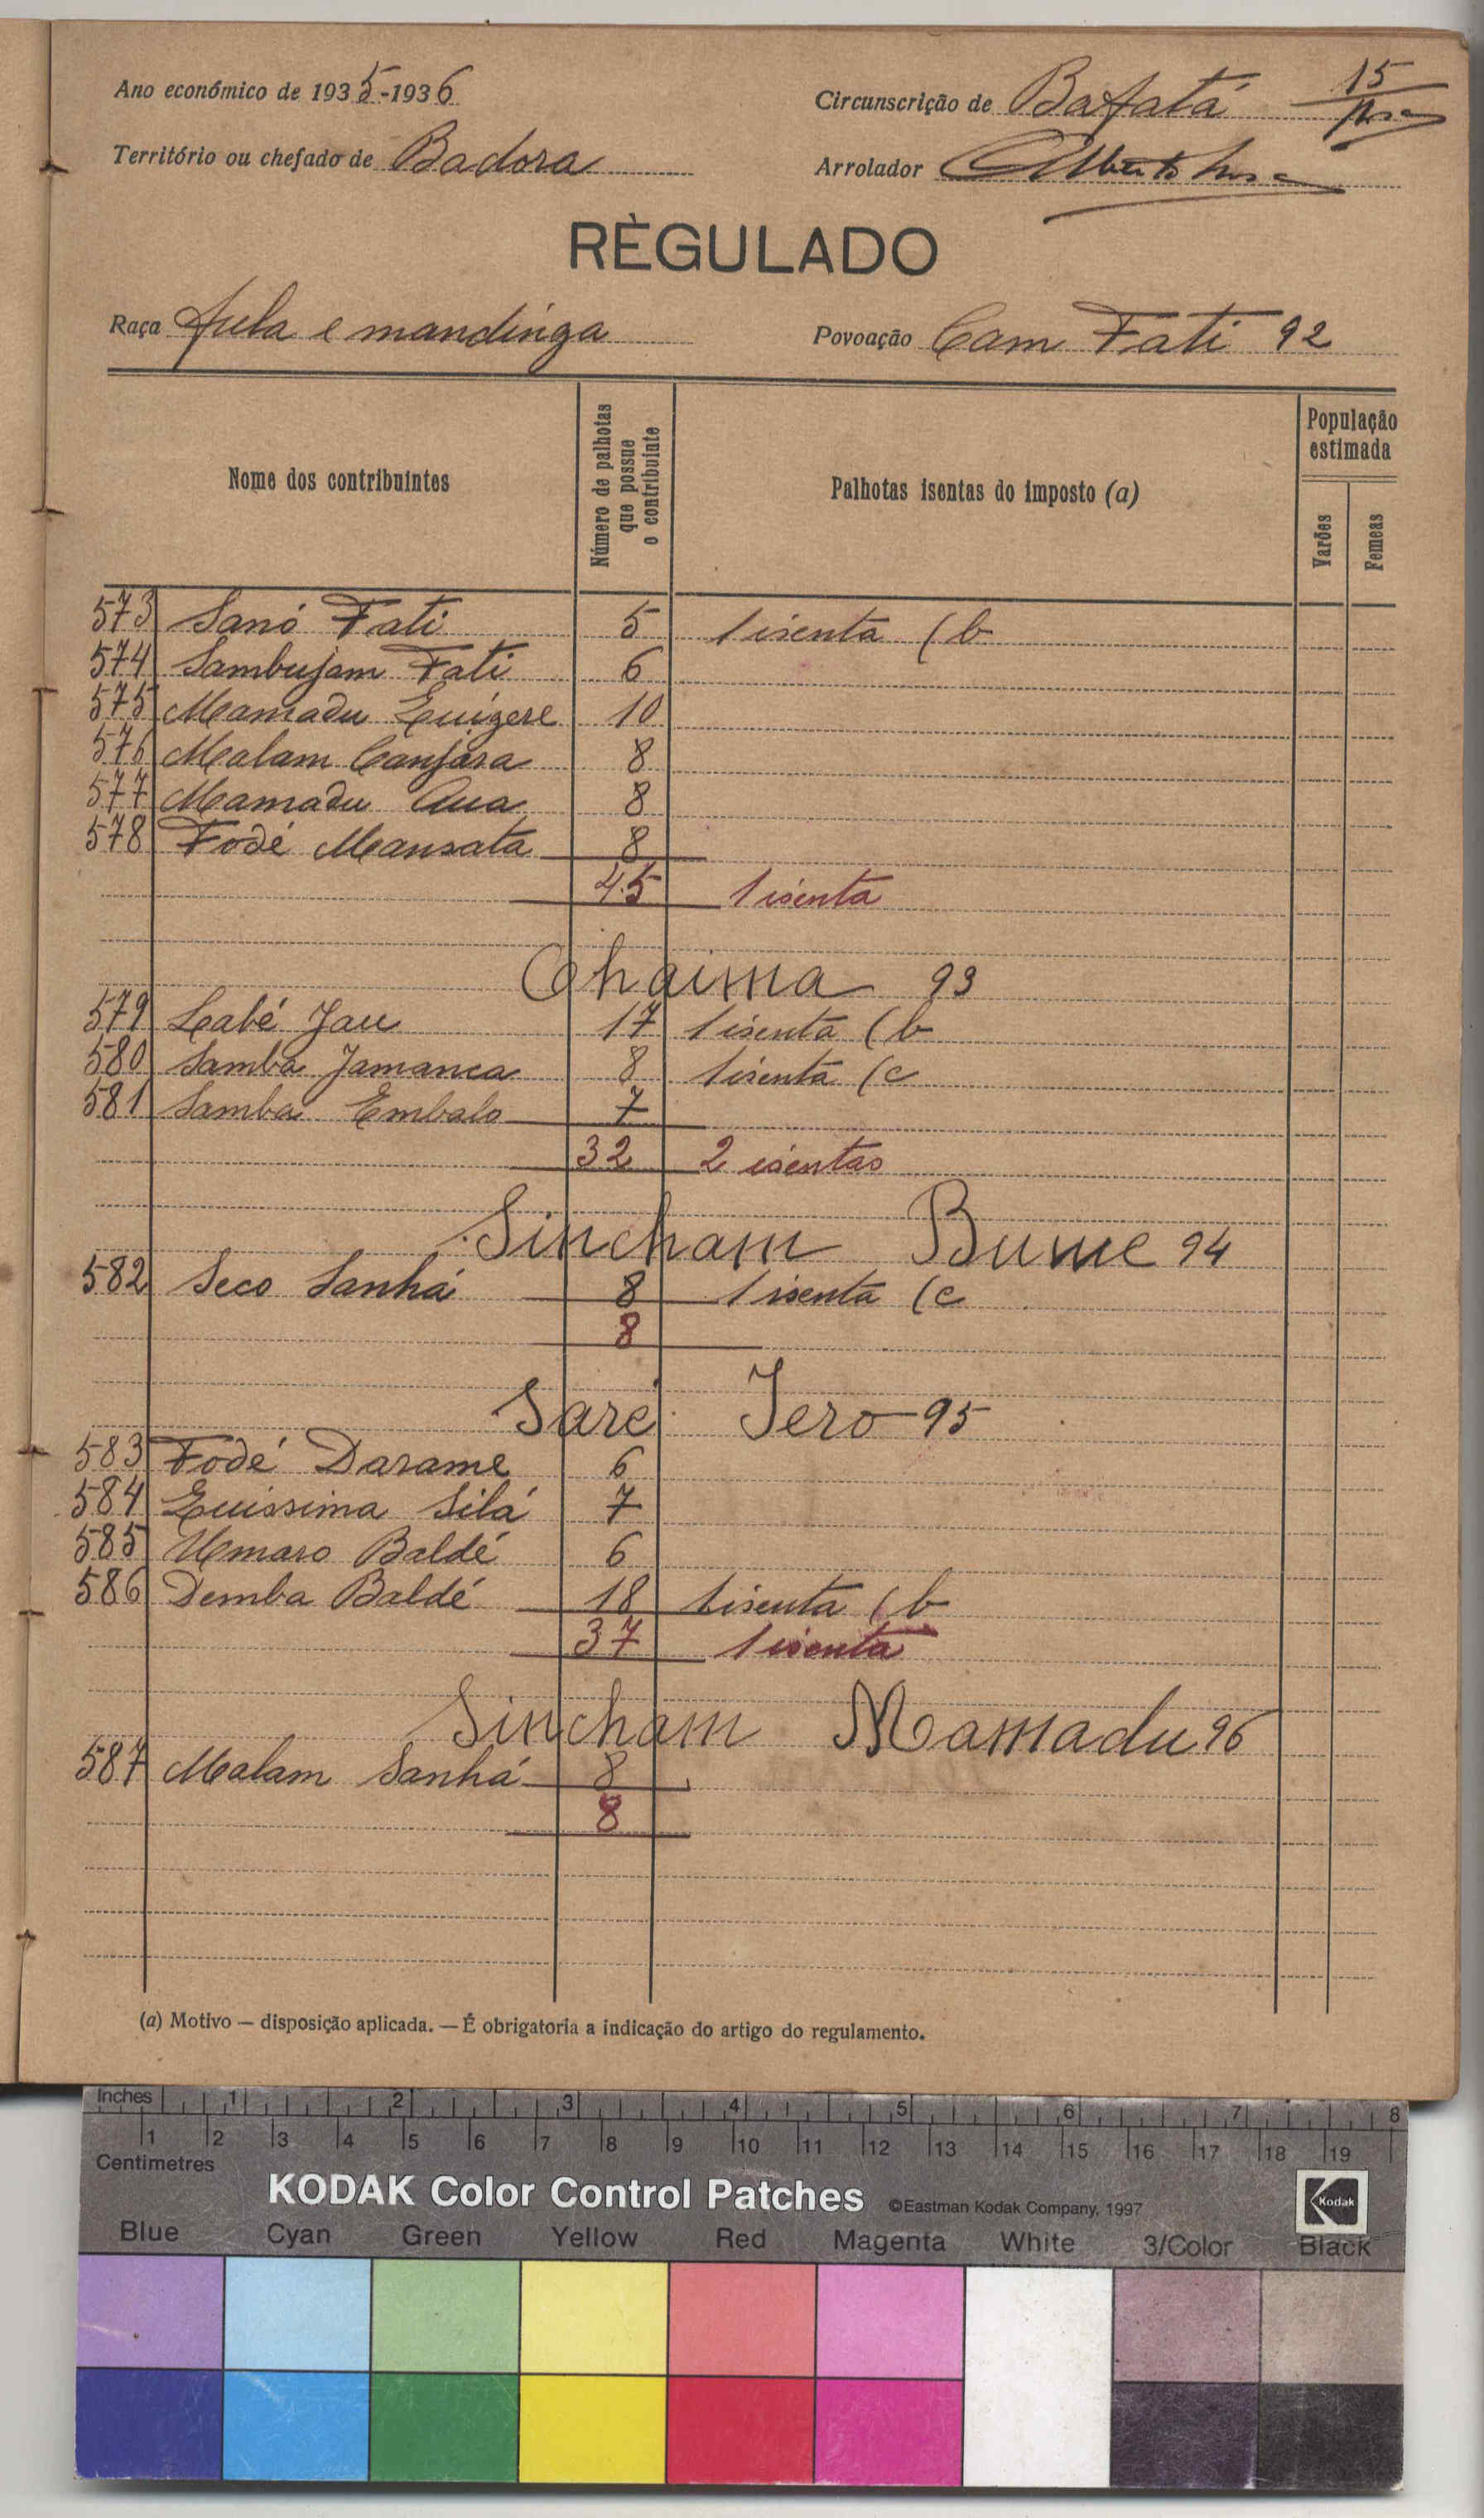 Ano económico de 1935-1936
Circunscrição de Bafatá 15
Território ou chefado de Badora
Arrolador Alberto
RÈGULADO
Raça fula e mandinga
Povoação Cam Fati 92
Nome dos contribuintes
Número de palhotas que possue o contribuinte
Palhotas isentas do imposto (a)
População estimada
Varões
Femeas
573 Sanó Fati 5 1 isenta (b
574 Sambujam Fati 6
575 Mamadu Quigere 10
576 Malam Canjára 8
577 Mamadu Aua 8
578 Fodé Mansata 8
45 1 isenta
Chaima 93
579 Labé Jau 17 1 isenta (b
580 Samba Jamanca 8 1 isenta (c
581 Samba Embalo 7
32 2 isentas
Sincham Bume 94
582 Seco Sanhá 8 1 isenta (c
8
Saré Jero 95
583 Fodé Darame 6
584 Quissima Silá 7
585 Umaro Baldé 6
586 Demba Baldé 18 1 isenta (b
37 1 isenta
Sincham Mamadu 96
587 Malam Sanhá 8
8
(a) Motivo — disposição aplicada. — É obrigatoria a indicação do artigo do regulamento.
Inches 1 2 3 4 5 6 7 8
1 2 3 4 5 6 7 8 9 10 11 12 13 14 15 16 17 18 19
Centimetres
KODAK Color Control Patches ©Eastman Kodak Company, 1997 Kodak
Blue Cyan Green Yellow Red Magenta White 3/Color Black